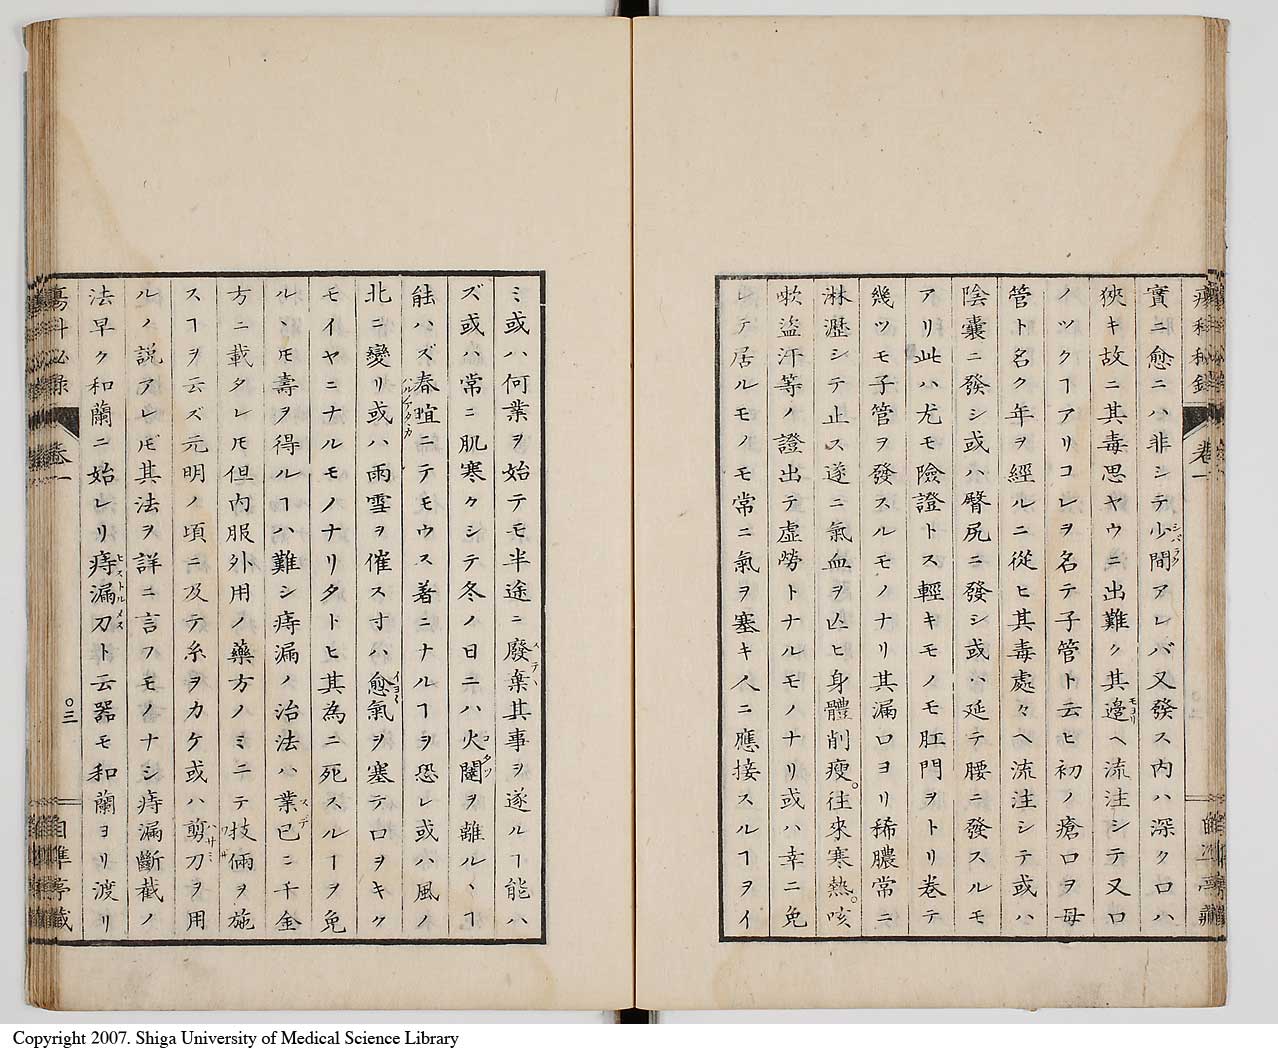 瘍科秘録 卷一
實ニ愈ニハ非シテ少間アレバ又發ス内ハ深ク口ハ
狹キ故ニ其毒思ヤウニ出難ク其邉ヘ流注シテ又口
ノツクヿアリコレヲ名テ子管ト云ヒ初ノ瘡口ヲ母
管ト名ク年ヲ經ルニ從ヒ其毒處々ヘ流注シテ或ハ
陰嚢ニ發シ或ハ臀尻ニ發シ或ハ延テ腰ニ發スルモ
アリ此ハ尤モ險證トス輕キモノモ肛門ヲトリ卷テ
幾ツモ子管ヲ發スルモノナリ其漏口ヨリ稀膿常ニ
淋瀝シテ止ス遂ニ氣血ヲ亾ヒ身體削瘦。往來寒熱。咳
嗽盜汗等ノ證出テ虚勞トナルモノナリ或ハ幸ニ免
レテ居ルモノモ常ニ氣ヲ塞キ人ニ應接スルヿヲイ
ミ或ハ何業ヲ始テモ半途ニ廢棄其事ヲ遂ルヿ能ハ
ズ或ハ常ニ肌寒クシテ冬ノ日ニハ火闥ヲ離ルヽヿ
能ハズ春暄ニテモウス著ニナルヿヲ恐レ或ハ風ノ
北ニ變リ或ハ雨雪ヲ催ス寸ハ愈氣ヲ塞テロヲキク
モイヤニナルモノナリタトヒ其為ニ死スルヿヲ免
ルヽモ壽ヲ得ルヿハ難シ痔漏ノ治法ハ業已ニ千金
方ニ載タレ𪜈但内服外用ノ藥方ノミニテ技倆ヲ施
スヿヲ云ズ元明ノ頃ニ及テ糸ヲカケ或ハ剪刀ヲ用
ルノ説アレ𪜈其法ヲ詳ニ言フモノナシ痔漏斷截ノ
法早ク和蘭ニ始レリ痔漏刀ト云器モ和蘭ヨリ渡リ
瘍科秘録 卷一 〇三 自準亭藏
Copyright 2007. Shiga University of Medical Science Library